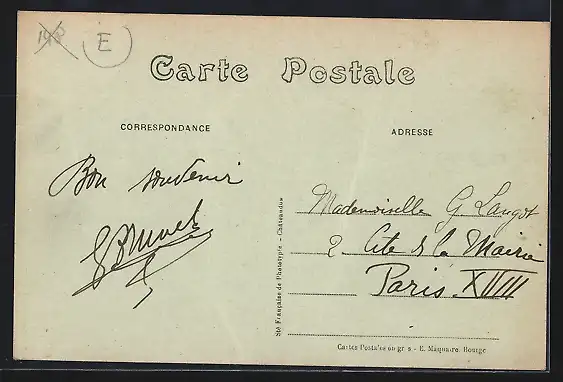 E
Carte Postale
CORRESPONDANCE
ADRESSE
Bon souvenir
Mademoiselle G. Langot
2 Cité de la Mairie
Paris XVIII
Sté Française de Phototypie - Châteaudun
Cartes Postales en gros - E. Maquaire, Bourge